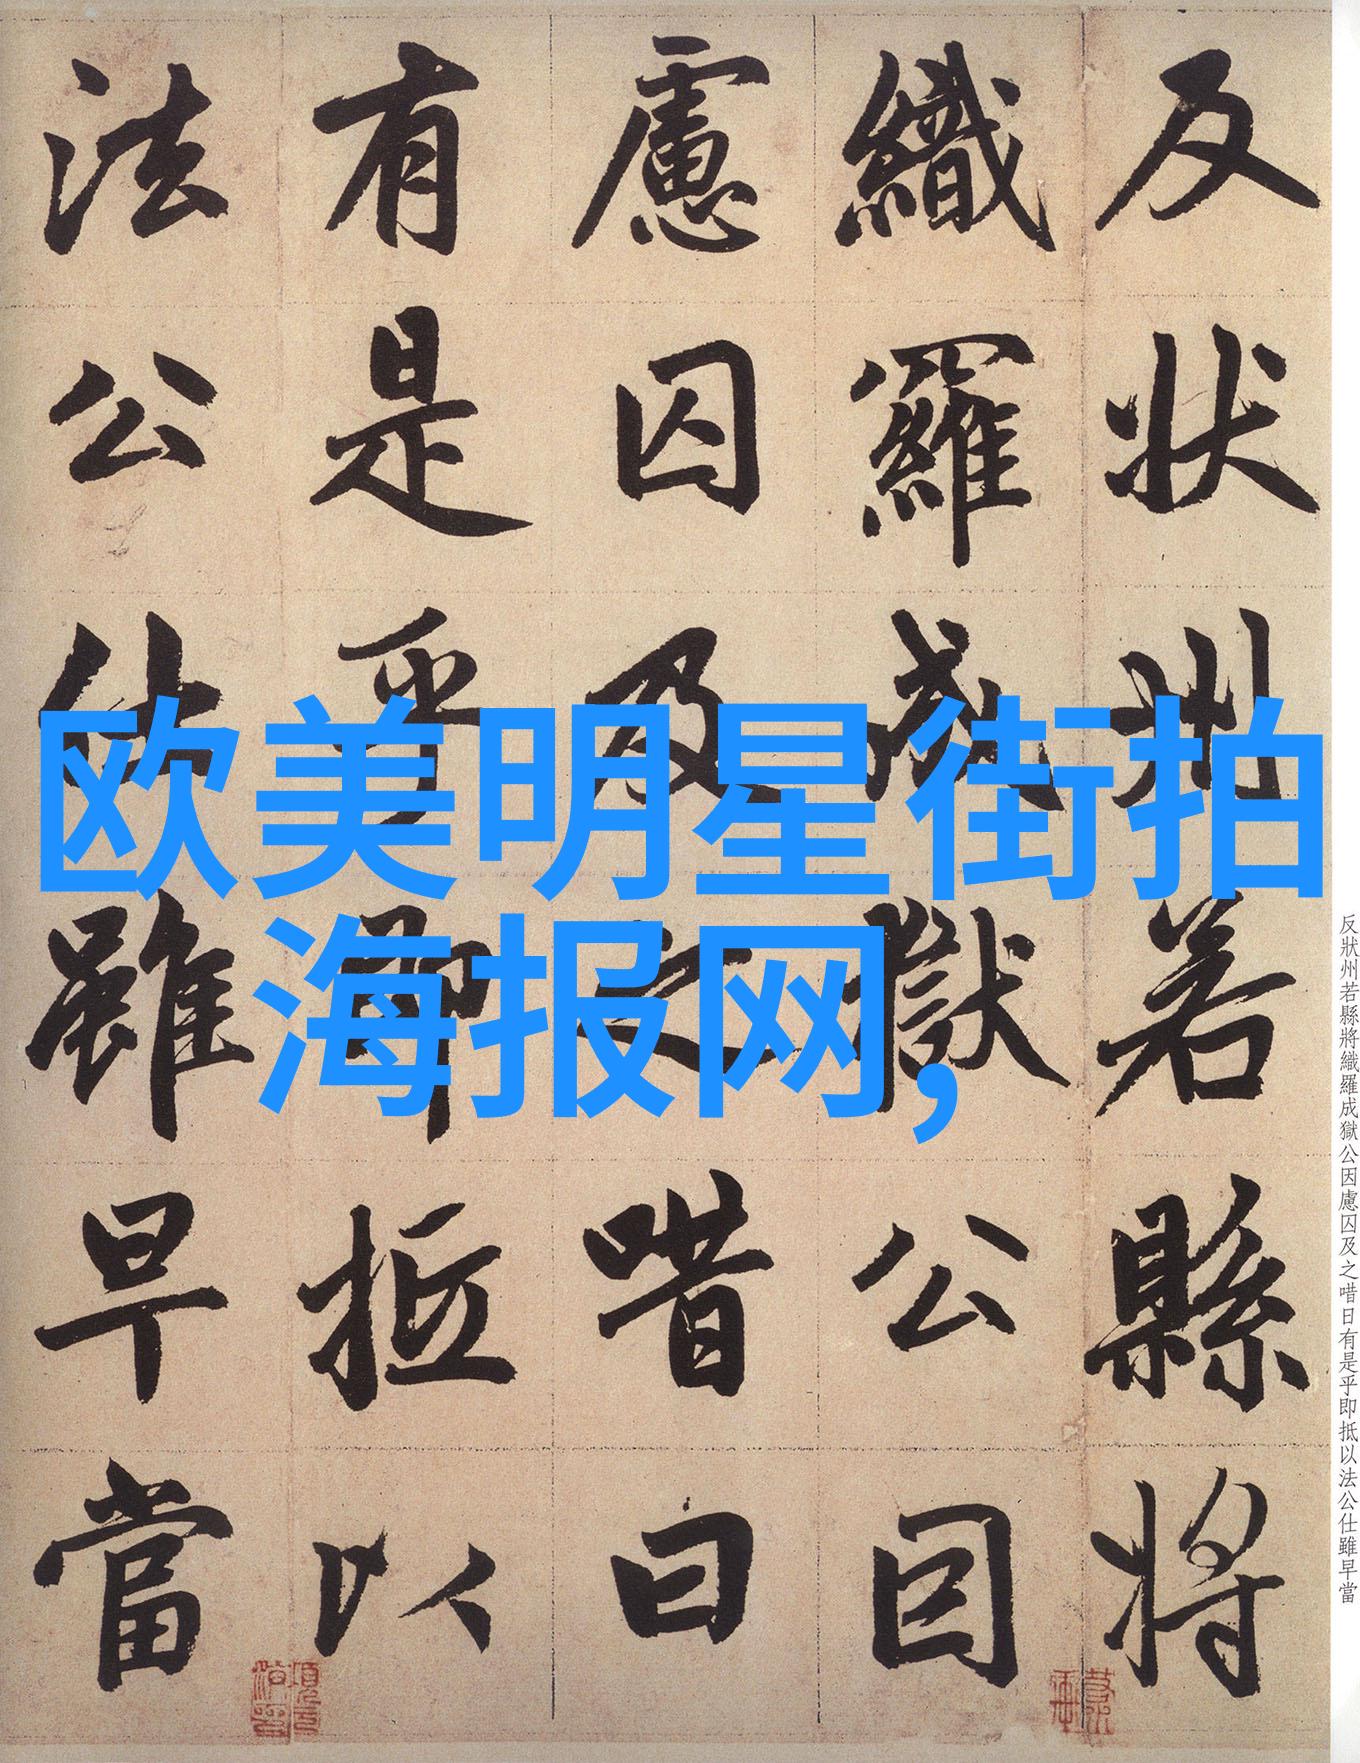 反状州若縣將
織羅成獄公因
慮囚及之唶曰
有是乎即抵以
法公仕雖早當
欧美明星街拍
海报网,
反狀州若縣將織羅成獄公因慮囚及之唶日有是乎即抵以法公仕雖早當